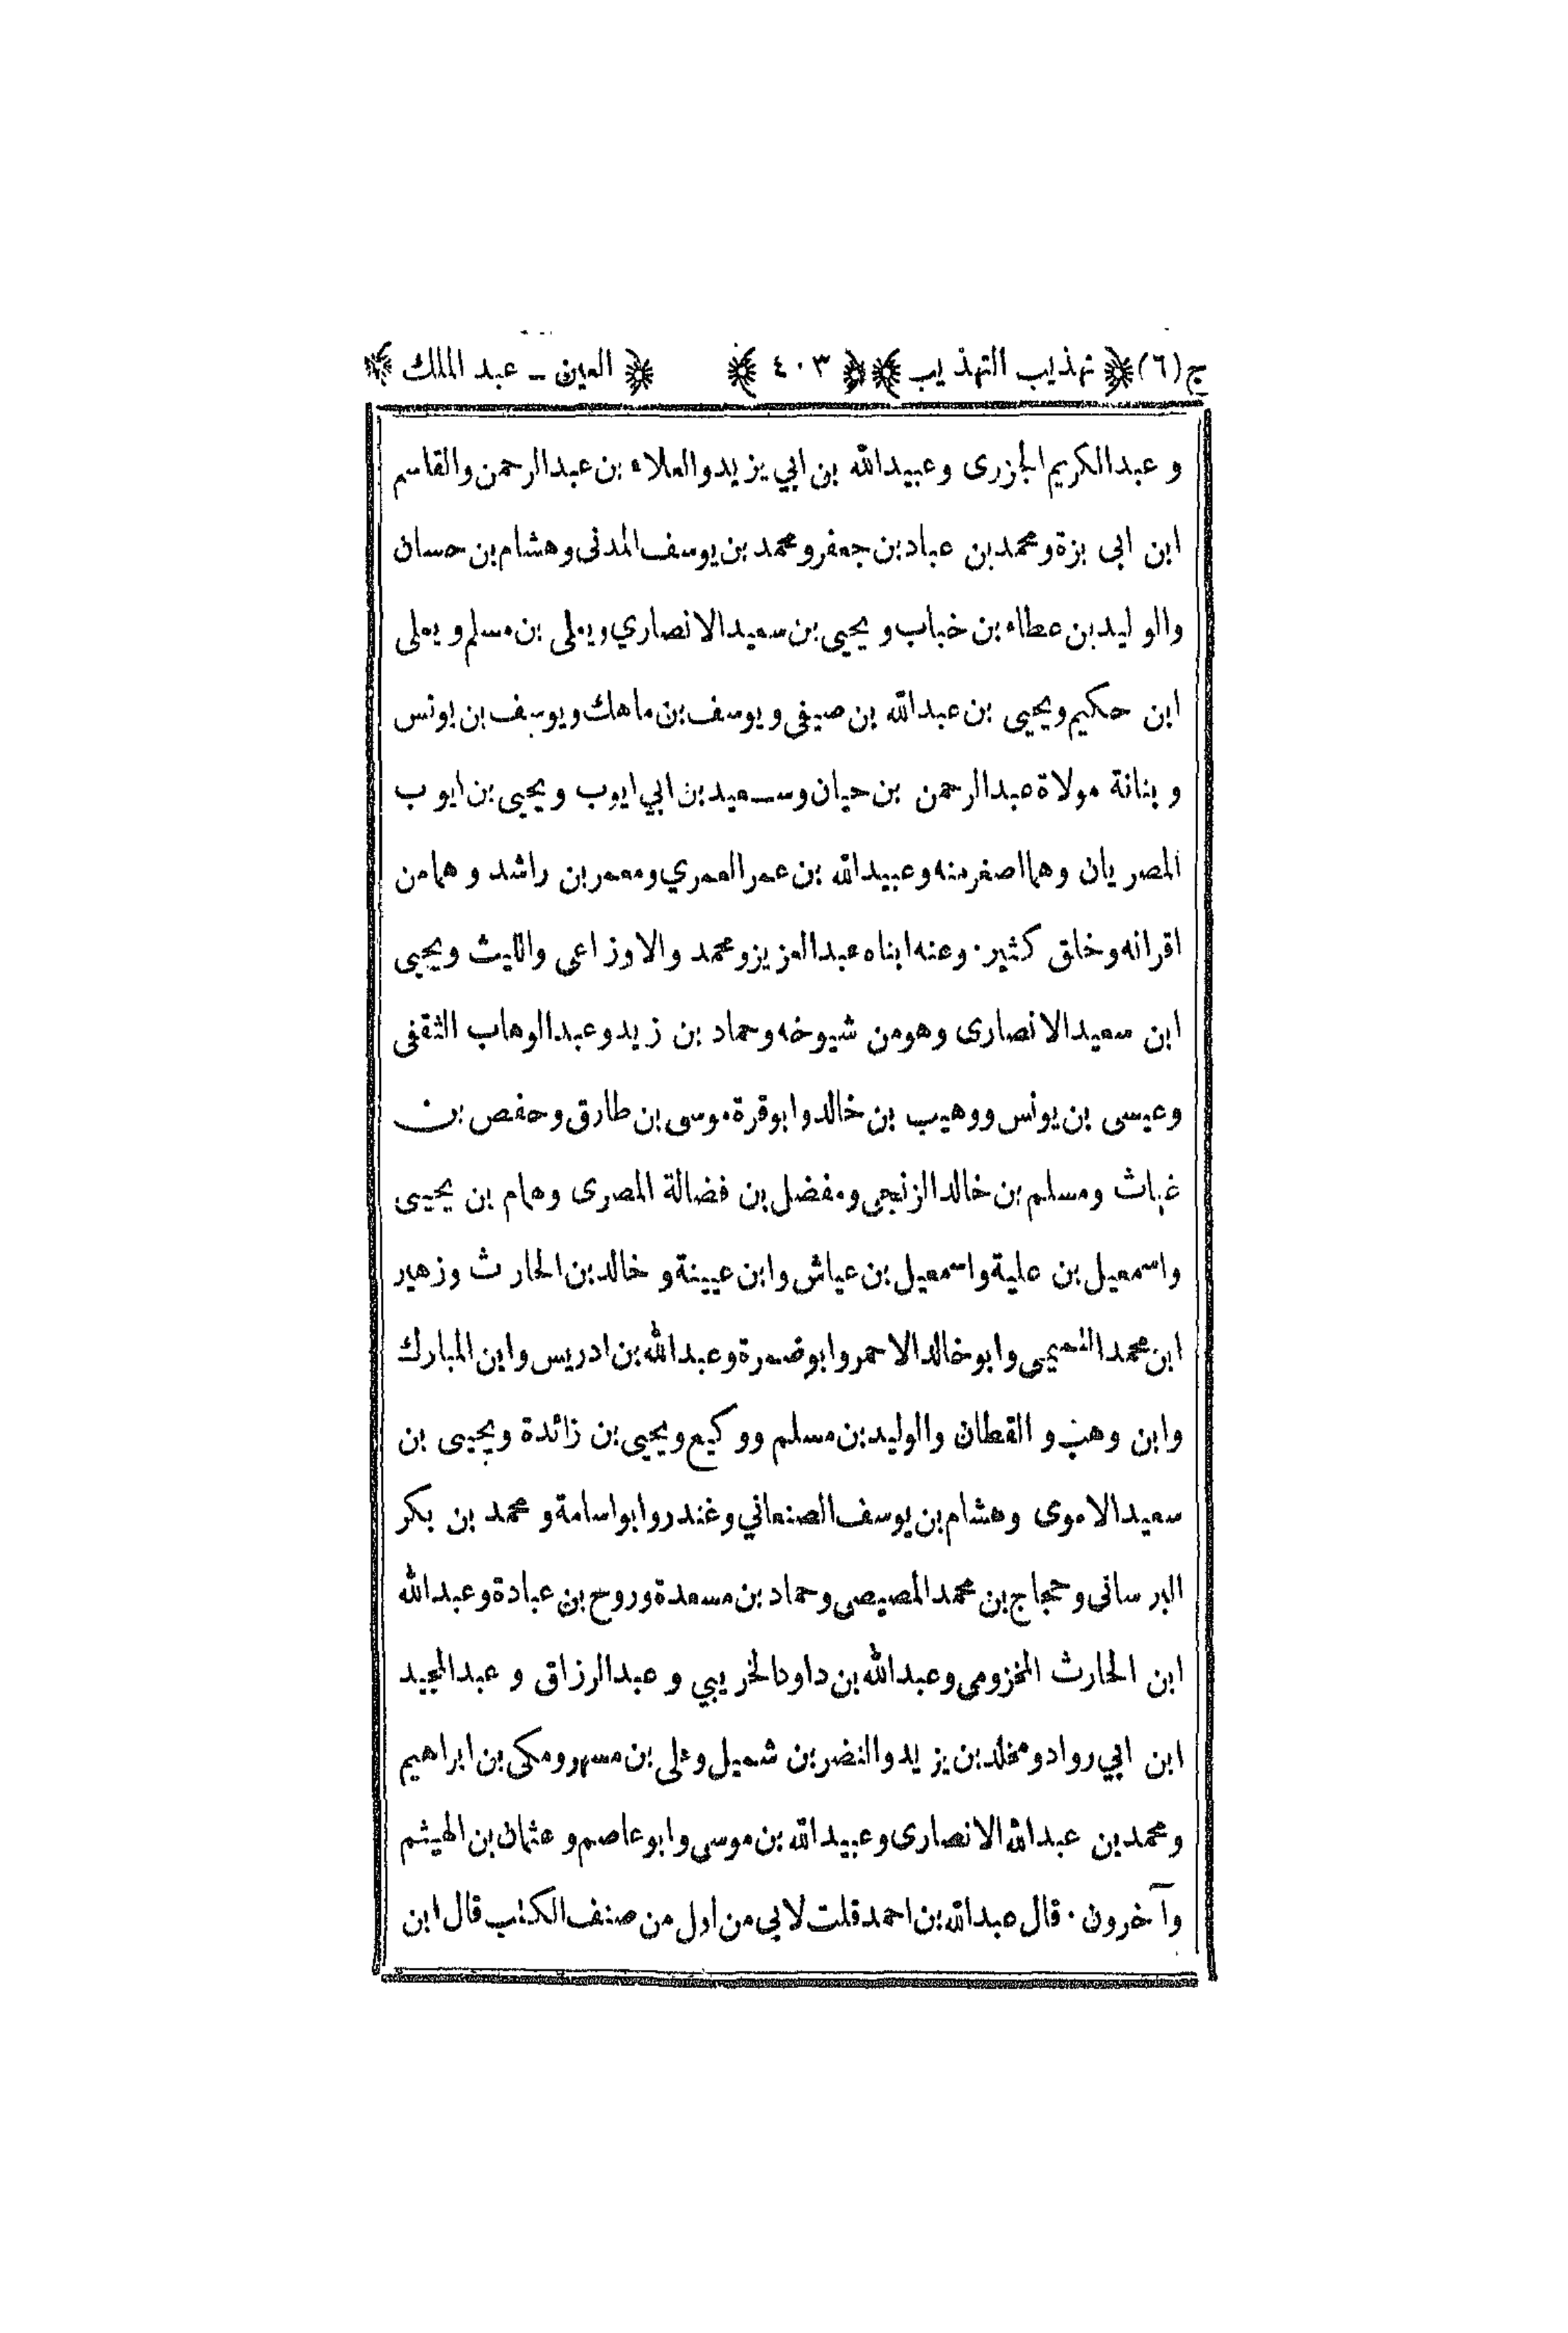 ج(٦) ﴿ تهذيب التهذيب ﴾ ﴿ ٤٠٣ ﴾ ﴿ العين ـ عبد الملك ﴾
و عبدالكريم الجزرى وعبيدالله بن ابي يزيد والعلاء بن عبدالرحمن والقاسم
ابن ابى بزة ومحمد بن عباد بن جعفر ومحمد بن يوسف المدنى وهشام بن حسان
والوليد بن عطاء بن خباب و يحيى بن سعيد الانصاري ويعلى بن مسلم ويعلى
ابن حكيم ويحيى بن عبدالله بن صيفى ويوسف بن ماهك ويوسف بن يونس
و بنانة مولاة عبدالرحمن بن حيان وسعيد بن ابي ايوب ويحيى بن ايوب
المصريان وهما اصغر منه وعبيدالله بن عمر العمري ومعمر بن راشد وهما من
اقرانه وخلق كثير. وعنه ابناه عبدالعزيز ومحمد والاوزاعى والليث ويحيى
ابن سعيد الانصارى وهو من شيوخه وحماد بن زيد وعبدالوهاب الثقفى
وعيسى بن يونس ووهيب بن خالد وابو قرة موسى بن طارق وحفص بن
غياث ومسلم بن خالد الزنجى ومفضل بن فضالة المصرى وهمام بن يحيى
واسمعيل بن علية واسمعيل بن عياش وابن عيينة وخالد بن الحارث وزهير
ابن محمد التميمى وابو خالد الاحمر وابو ضمرة وعبدالله بن ادريس وابن المبارك
وابن وهب و القطان والوليد بن مسلم ووكيع ويحيى بن زائدة ويحيى بن
سعيد الاموى وهشام بن يوسف الصنعاني وغندر وابو اسامة ومحمد بن بكر
البرسانى وحجاج بن محمد المصيصى وحماد بن مسعدة وروح بن عبادة وعبدالله
ابن الحارث المخزومى وعبدالله بن داود الخريبي و عبدالرزاق و عبدالمجيد
ابن ابي رواد ومخلد بن يزيد والنضر بن شميل وعلى بن مسهر ومكى بن ابراهيم
ومحمد بن عبدالله الانصارى وعبيدالله بن موسى وابو عاصم وعثمان بن الهيثم
وآخرون. قال عبدالله بن احمد قلت لابى من اول من صنف الكتب قال ابن